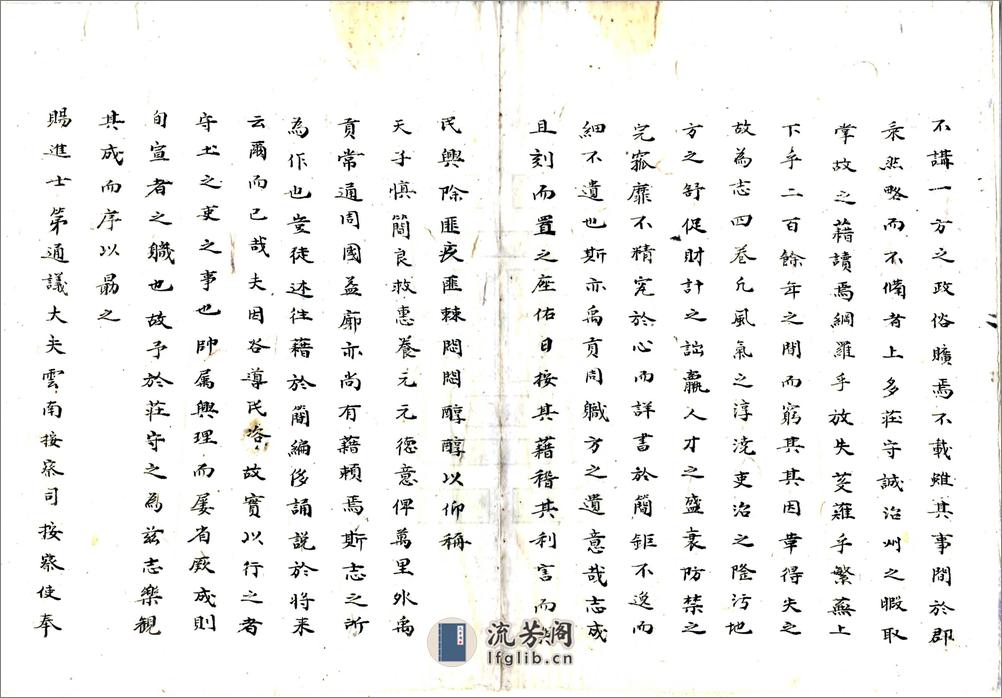 不講一方之政俗曠焉不載雖其事間於郡
乘然略而不備者上多莊守誠治州之暇取
掌故之藉讀焉網羅乎放失芟薙乎繁蕪上
下乎二百餘年之間而窮其其因革得失之
故為志四卷凡風氣之淳澆吏治之隆汚地
方之舒促財計之詘贏人才之盛衰防禁之
完窳靡不精究於心而詳書於簡鉅不逸而
細不遺也斯亦禹貢周職方之遺意哉志成
且刻而置之座佑日按其藉稽其利害而
民興除匪疚匪棘悶悶醇醇以仰稱
天子慎簡良救惠養元元德意俾萬里外禹
貢常通周國益廓亦尚有藉賴焉斯志之所
為作也豈徒述往藉於蘭編侈誦說於將来
云爾而已哉夫因俗導民咨故實以行之者
守土之吏之事也帥属興理而屢省厥成則
旬宣者之職也故予於莊守之為茲志樂觀
其成而序以勗之
賜進士第通議大夫雲南按察司按察使奉
流芳阁
lfglib.cn